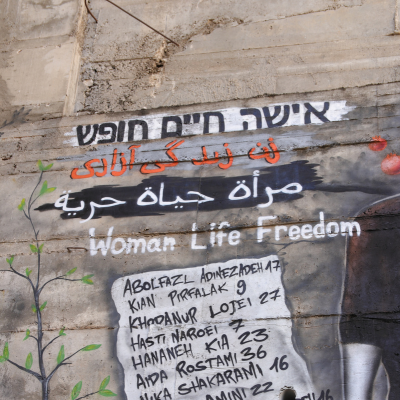 אישה חיים חופש
زن زندگی آزادی
مرأة حياة حرية
Woman Life Freedom
ABOLFAZL ADINEZADEH 17
KIAN PIRFALAK 9
KHODANUR LOJEI 27
HASTI NAROEI 7
HANANEH KIA 23
AIDA ROSTAMI 36
NIKA SHAKARAMI 16
AMINI 22
16